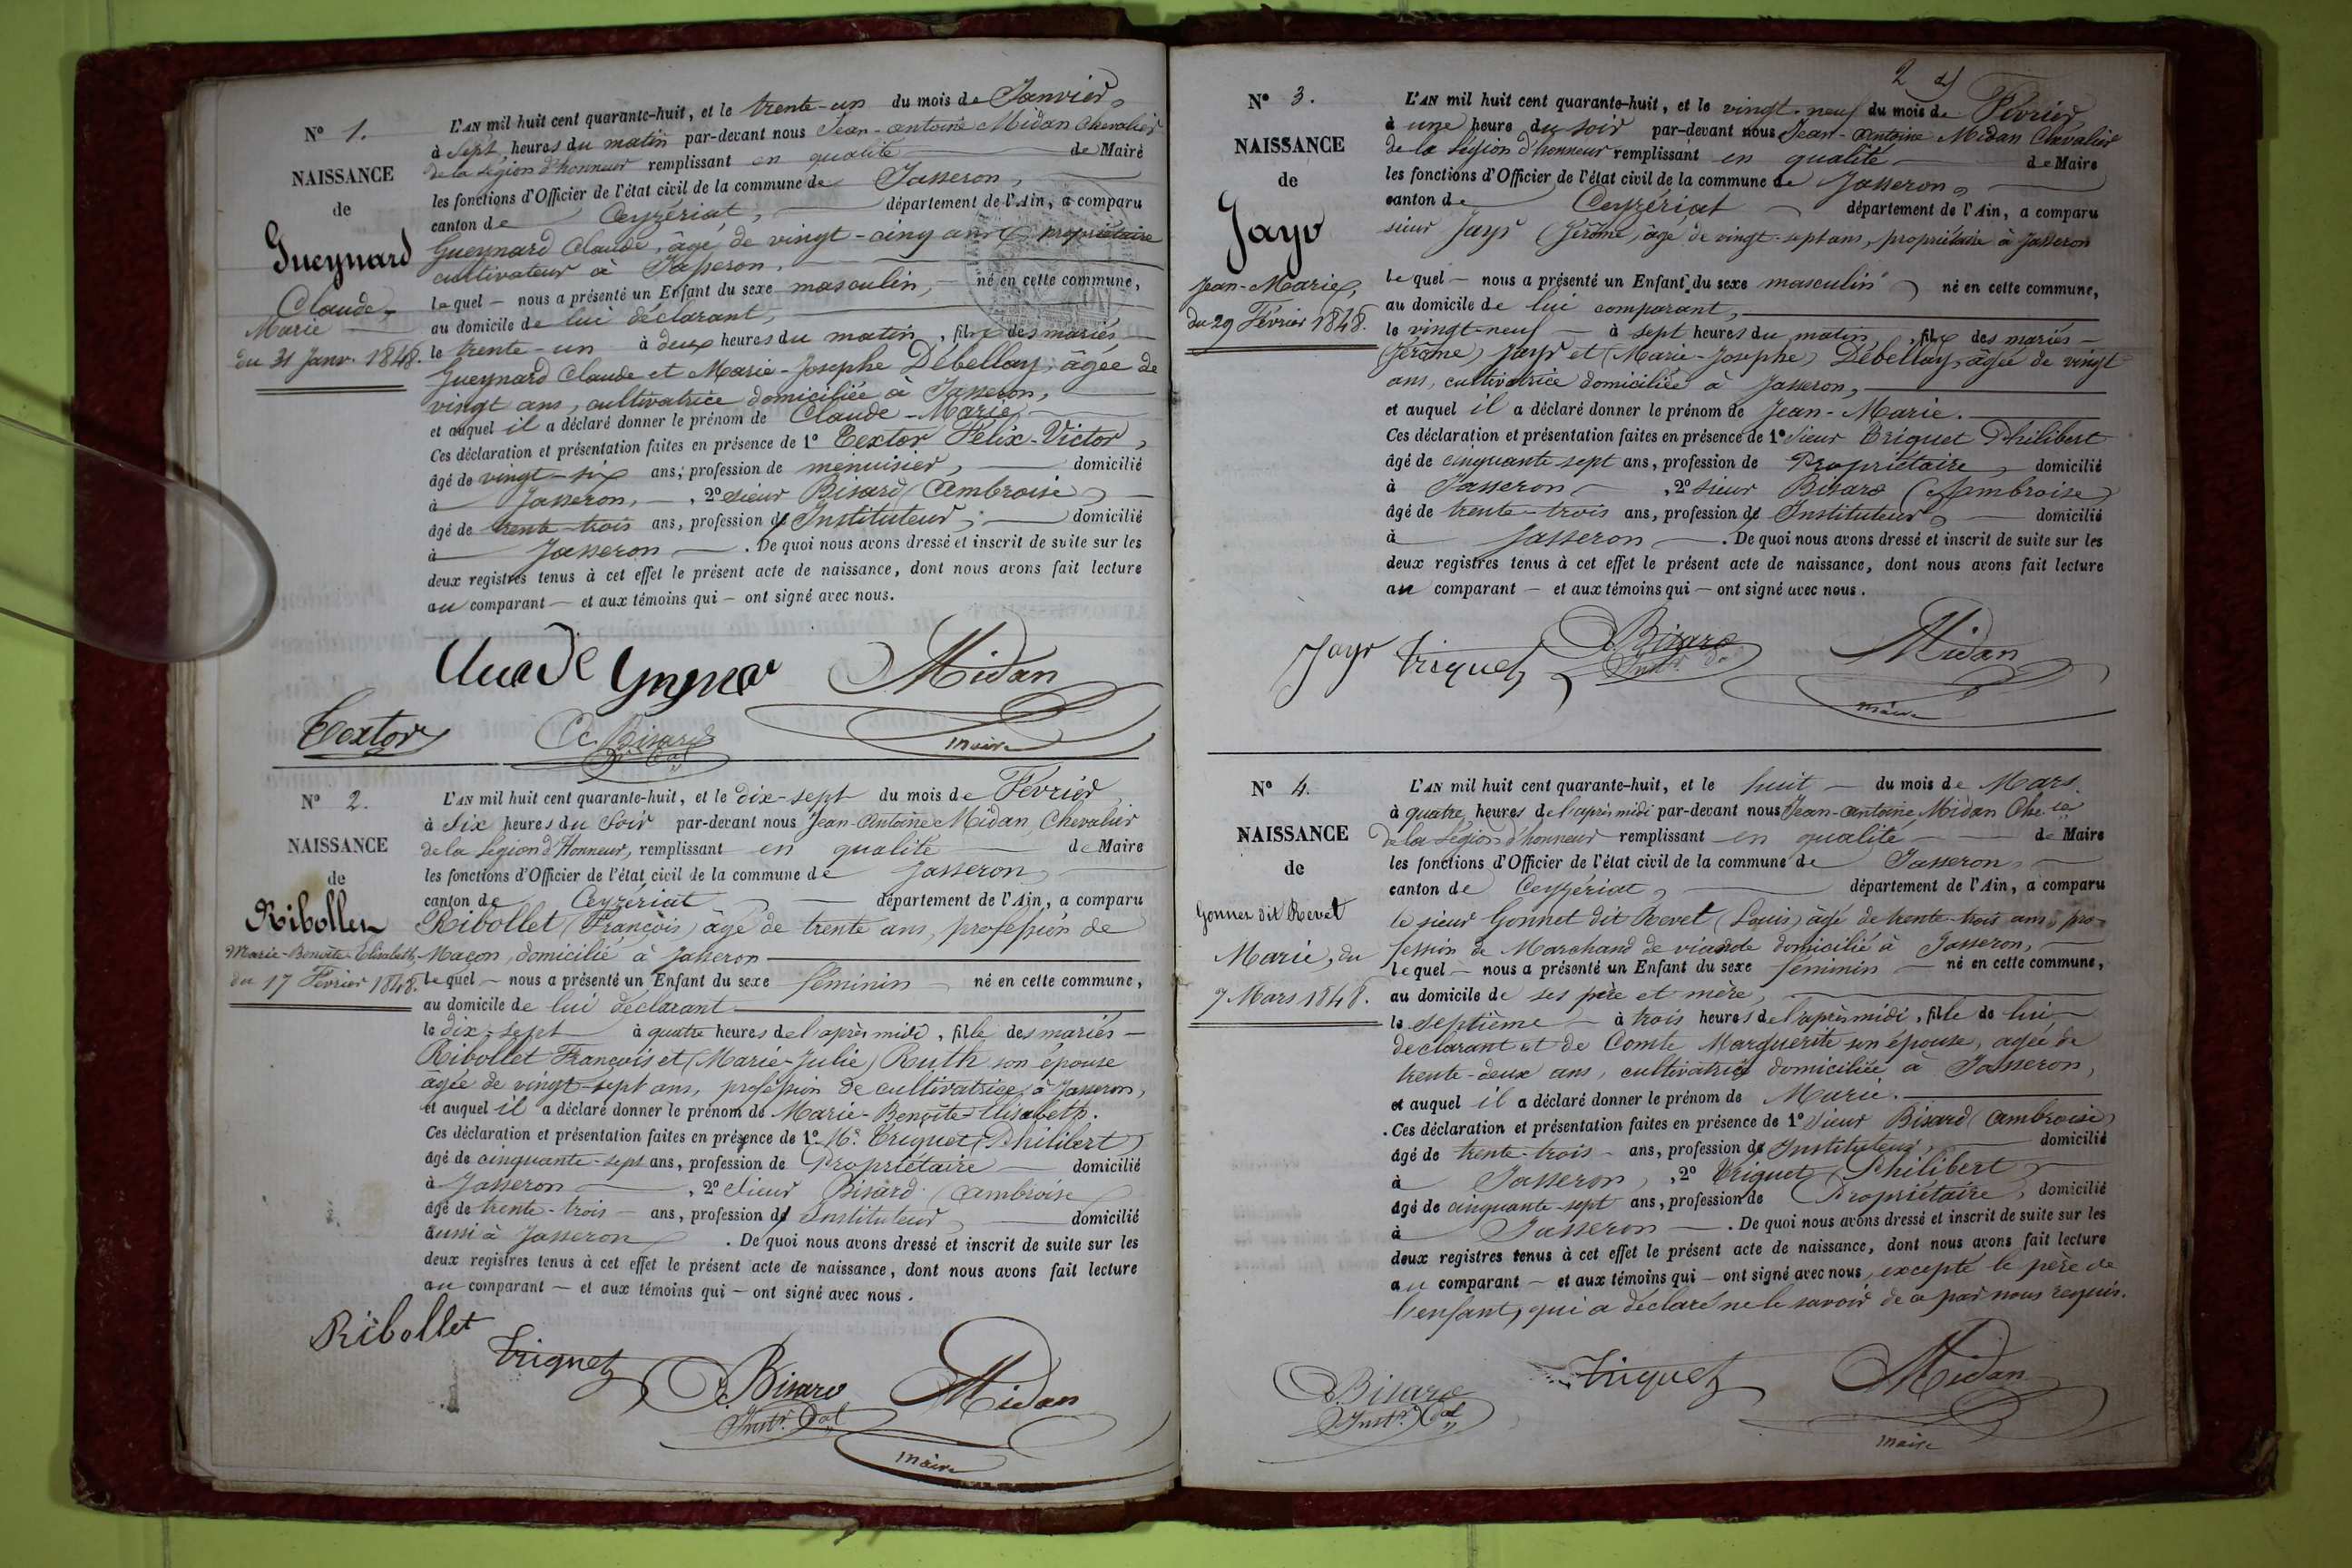 N° 1.
NAISSANCE
de
Gueynard
Claude-
Marie
du 31 Janv. 1848.
L'AN mil huit cent quarante-huit, et le trente-un du mois de Janvier,
à Sept heures du matin par-devant nous Jean-Antoine Midan Chevalier
de la Légion d'honneur remplissant en qualité de Maire
les fonctions d'Officier de l'état civil de la commune de Jasseron,
canton de Ceyzériat, département de l'Ain, a comparu
Gueynard Claude, âgé de vingt-cinq ans, propriétaire
cultivateur à Jasseron.
lequel - nous a présenté un Enfant du sexe masculin, né en cette commune,
au domicile de lui déclarant,
le trente-un à deux heures du matin, fils des mariés
Gueynard Claude et Marie-Josephe Débellay, âgée de
vingt ans, cultivatrice domiciliée à Jasseron,
et auquel il a déclaré donner le prénom de Claude-Marie.
Ces déclaration et présentation faites en présence de 1° Textor Félix-Victor,
âgé de vingt-six ans, profession de menuisier, domicilié
à Jasseron, , 2° sieur Bisard (Ambroise)
âgé de trente-trois ans, profession d'Instituteur, domicilié
à Jasseron. De quoi nous avons dressé et inscrit de suite sur les
deux registres tenus à cet effet le présent acte de naissance, dont nous avons fait lecture
au comparant - et aux témoins qui - ont signé avec nous.
Midan
Textor
Bisard
maire
N° 2.
NAISSANCE
de
Ribollet
Marie-Benoîte-Elisabeth,
du 17 Février 1848.
L'AN mil huit cent quarante-huit, et le dix-sept du mois de Février
à Six heures du Soir par-devant nous Jean-Antoine Midan, Chevalier
de la Légion d'Honneur, remplissant en qualité de Maire
les fonctions d'Officier de l'état civil de la commune de Jasseron,
canton de Ceyzériat, département de l'Ain, a comparu
Ribollet (François) âgé de trente ans, profession de
Maçon, domicilié à Jasseron
lequel - nous a présenté un Enfant du sexe féminin né en cette commune,
au domicile de lui déclarant
le dix-sept à quatre heures de l'après midi, fille des mariés -
Ribollet François et (Marie-Julie) Ruth son épouse
âgée de vingt-sept ans, profession de cultivatrice, à Jasseron,
et auquel il a déclaré donner le prénom de Marie-Benoîte-Elisabeth.
Ces déclaration et présentation faites en présence de 1° Mr. Triquet (Philibert)
âgé de cinquante-sept ans, profession de Propriétaire domicilié
à Jasseron , 2° Sieur Bisard (Ambroise
âgé de trente-trois ans, profession d'Instituteur, domicilié
aussi à Jasseron. De quoi nous avons dressé et inscrit de suite sur les
deux registres tenus à cet effet le présent acte de naissance, dont nous avons fait lecture
au comparant - et aux témoins qui - ont signé avec nous.
Ribollet
Triquet
Bisard
Midan
maire
2
N° 3.
NAISSANCE
de
Jayr
Jean-Marie,
du 29 Février 1848.
L'AN mil huit cent quarante-huit, et le vingt-neuf du mois de Février
à une heure du soir par-devant nous Jean-Antoine Midan Chevalier
de la Légion d'honneur remplissant en qualité de Maire
les fonctions d'Officier de l'état civil de la commune de Jasseron,
canton de Ceyzériat département de l'Ain, a comparu
sieur Jayr (Jérôme, âgé de vingt-sept ans, propriétaire à Jasseron
lequel - nous a présenté un Enfant du sexe masculin, né en cette commune,
au domicile de lui comparant,
le vingt-neuf à sept heures du matin, fils des mariés -
(Jérôme) Jayr et (Marie-Josephe) Débellay, âgée de vingt
ans, cultivatrice domiciliée à Jasseron,
et auquel il a déclaré donner le prénom de Jean-Marie.
Ces déclaration et présentation faites en présence de 1° Sieur Triquet Philibert
âgé de cinquante sept ans, profession de Propriétaire, domicilié
à Jasseron , 2° sieur Bisard (Ambroise)
âgé de trente-trois ans, profession d'Instituteur, domicilié
à Jasseron. De quoi nous avons dressé et inscrit de suite sur les
deux registres tenus à cet effet le présent acte de naissance, dont nous avons fait lecture
au comparant - et aux témoins qui - ont signé avec nous.
Jayr
Triquet
Bisard
Midan
maire
N° 4.
NAISSANCE
de
Gonnet dit Revet
Marie, du
7 Mars 1848.
L'AN mil huit cent quarante-huit, et le huit du mois de Mars.
à quatre heures de l'après midi par-devant nous Jean-Antoine Midan Che.ier
de la Légion d'honneur remplissant en qualité de Maire
les fonctions d'Officier de l'état civil de la commune de Jasseron,
canton de Ceyzériat, département de l'Ain, a comparu
le sieur Gonnet dit Revet (Louis) âgé de trente-trois ans, pro-
fession de Marchand de viande domicilié à Jasseron,
lequel - nous a présenté un Enfant du sexe féminin né en cette commune,
au domicile de ses père et mère,
le septième à trois heures de l'après midi, fille de lui
déclarant et de Comte Marguerite son épouse, agée de
trente-deux ans, cultivatrice domiciliée à Jasseron,
et auquel il a déclaré donner le prénom de Marie.
Ces déclaration et présentation faites en présence de 1° Sieur Bisard (Ambroise)
âgé de trente-trois ans, profession d'Instituteur, domicilié
à Jasseron, , 2° Triquet (Philibert
âgé de cinquante-sept ans, profession de Propriétaire, domicilié
à Jasseron. De quoi nous avons dressé et inscrit de suite sur les
deux registres tenus à cet effet le présent acte de naissance, dont nous avons fait lecture
au comparant - et aux témoins qui - ont signé avec nous, excepté le père de
l'enfant, qui a déclaré ne le savoir de ce par nous requis.
Bisard
Triquet
Midan
maire